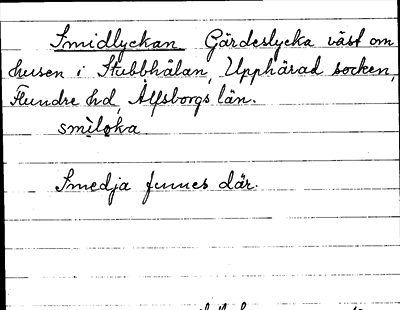 Smidlyckan Gärdeslycka väst om
husen i Stubbhålan, Upphärad socken,
Flundre hd, Älfsborgs län.
smìlǫka
Smedja funnes där.